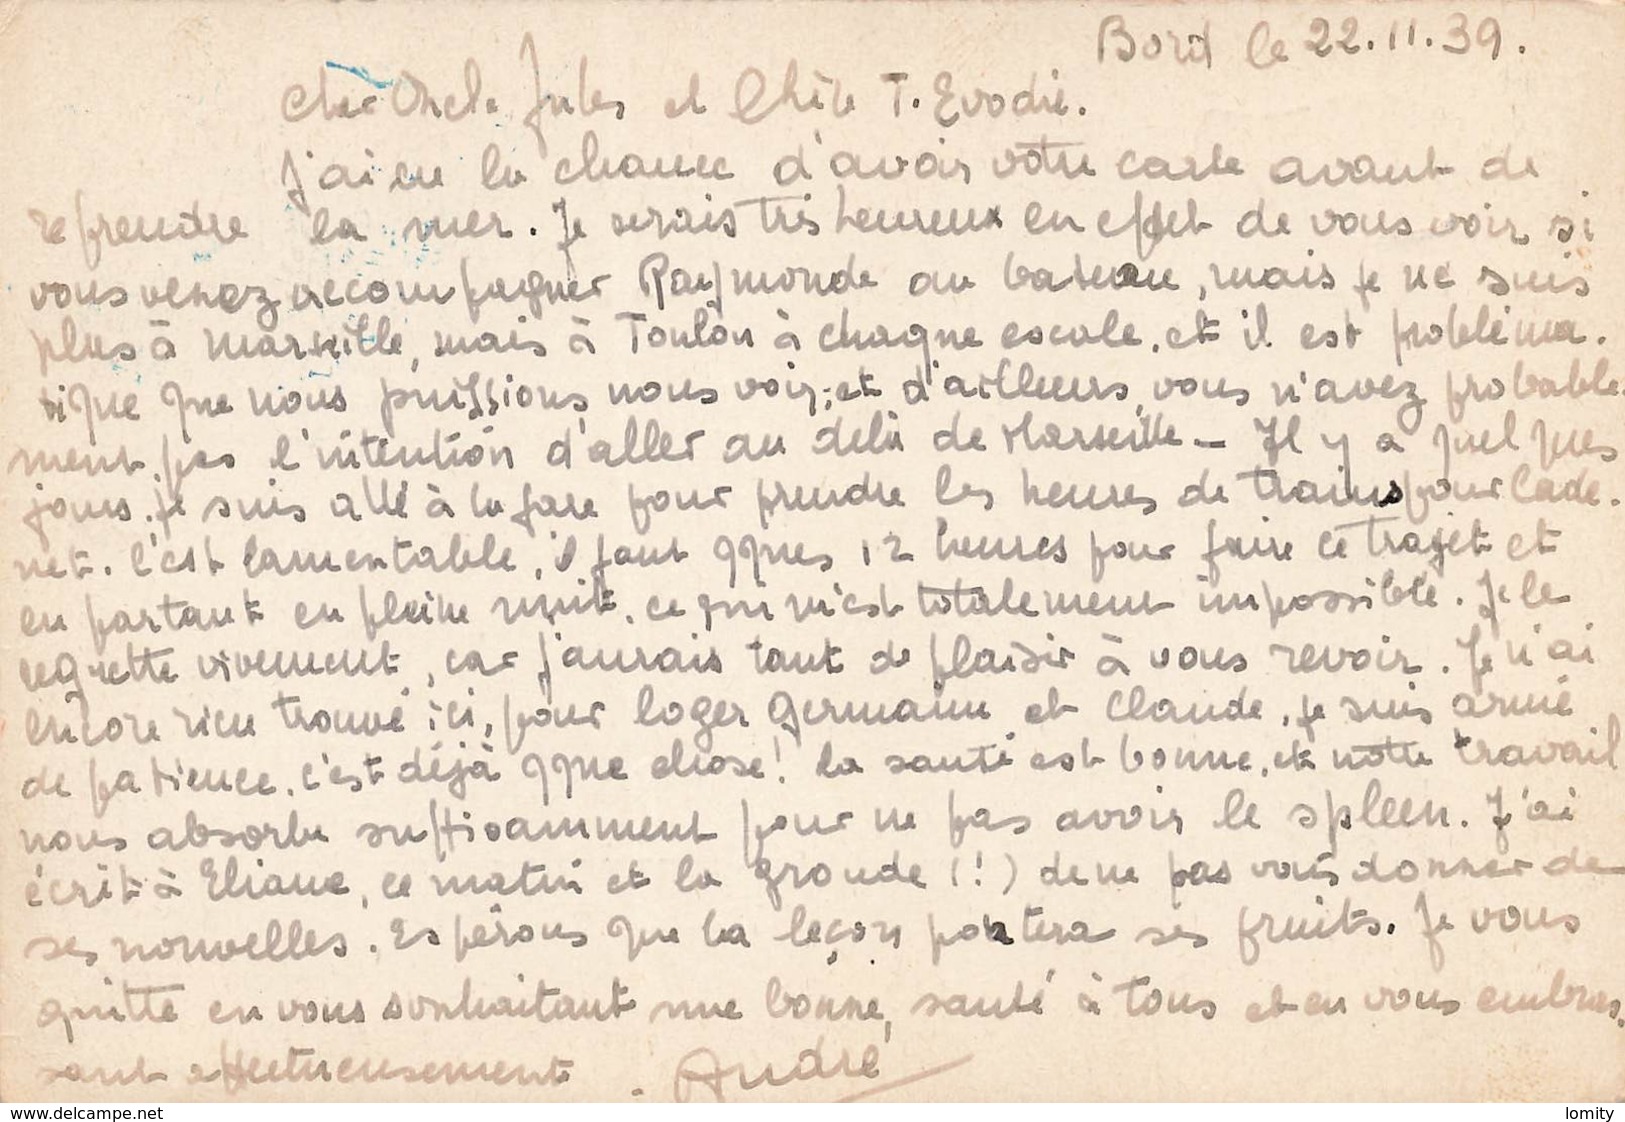 Bord le 22.11.39.
Cher Oncle Jules et Chère T. Evodie.
J'ai eu la chance d'avoir votre carte avant de
reprendre la mer. Je serais très heureux en effet de vous voir si
vous venez accompagner Raymonde au bateau, mais je ne suis
plus à Marseille, mais à Toulon à chaque escale. et il est probléma-
tique que nous puissions nous voir; et d'ailleurs, vous n'avez probable-
ment pas l'intention d'aller au delà de Marseille - Il y a quelques
jours. je suis allé à la gare pour prendre les heures de trains pour Cade-
net. C'est lamentable, il faut qques 12 heures pour faire ce trajet et
en partant en pleine nuit. ce qui m'est totalement impossible. Je le
regrette vivement, car j'aurais tant de plaisir à vous revoir. Je n'ai
encore rien trouvé ici, pour loger Germaine et Claude, je suis armé
de patience. c'est déjà qque chose! La santé est bonne, et notre travail
nous absorbe suffisamment pour ne pas avoir le spleen. J'ai
écrit à Eliane, ce matin et la gronde (!) de ne pas vous donner de
ses nouvelles. Espérons que la leçon portera ses fruits. Je vous
quitte en vous souhaitant une bonne, santé à tous et en vous embras-
sant affectueusement. André
www.delcampe.net
lomity